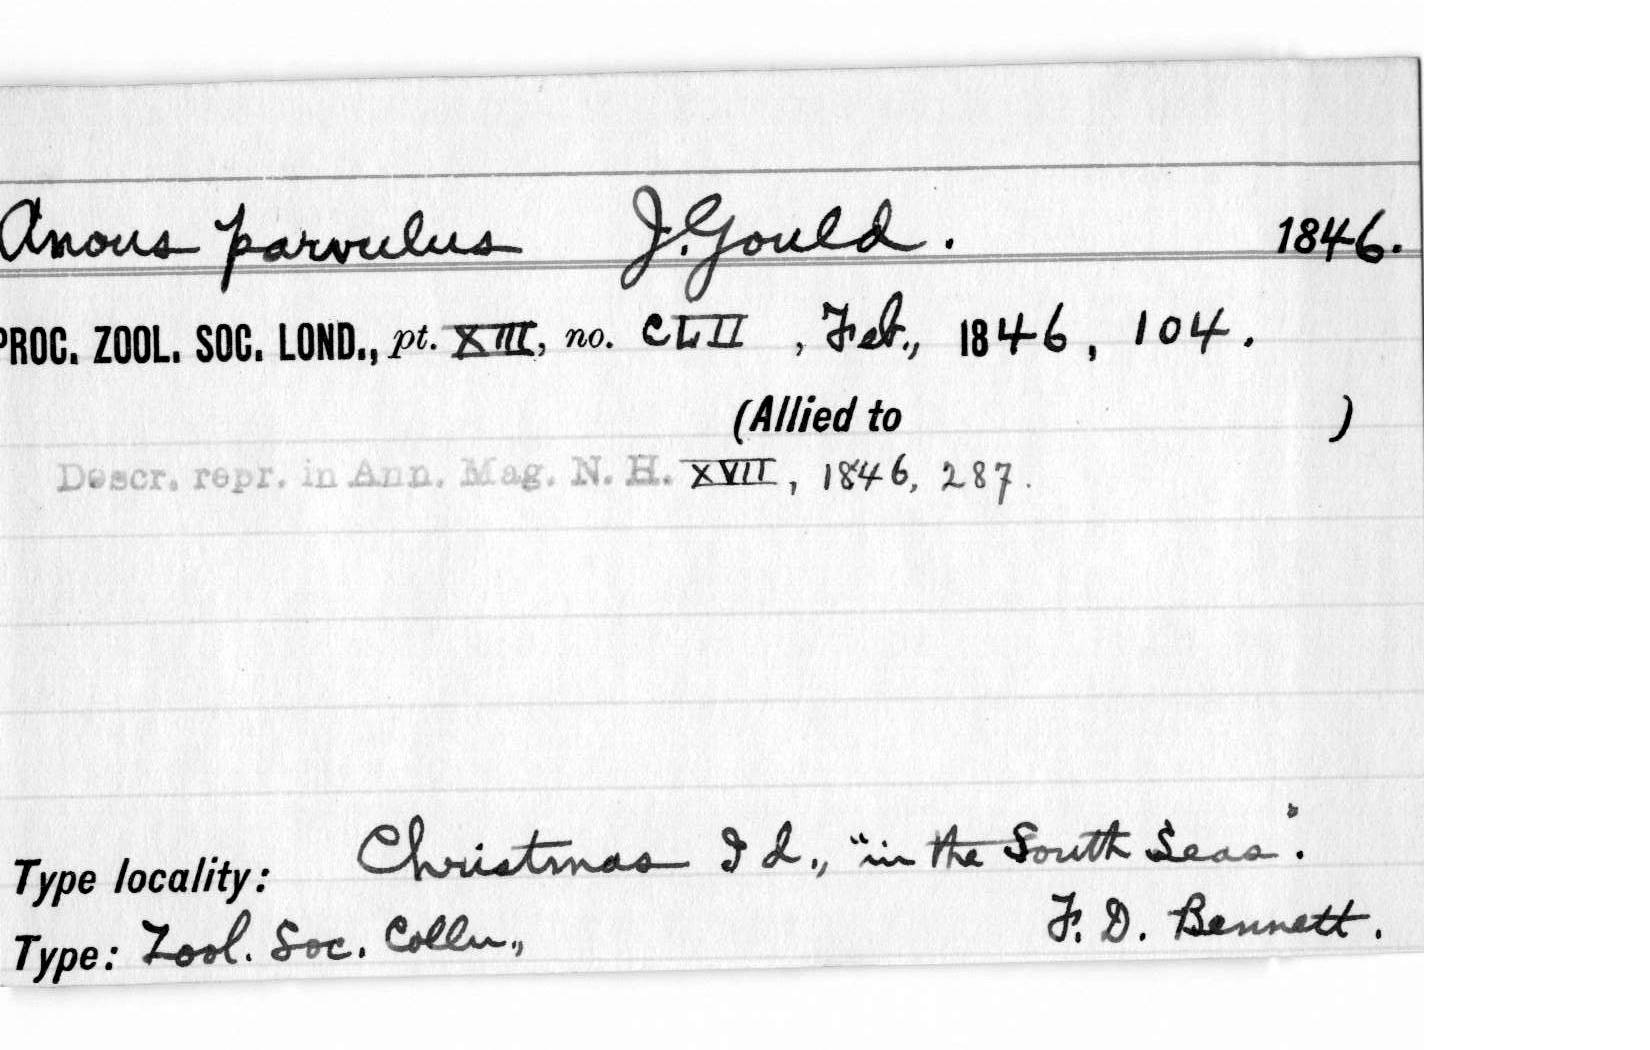 Anous parvulus J. Gould. 1846.
PROC. ZOOL. SOC. LOND., pt. XIII, no. CLII, Feb., 1846, 104.
(Allied to )
Descr. repr. in Ann. Mag. N. H. XVII, 1846, 287.
Type locality: Christmas Id., "in the South Seas".
Type: Zool. Soc. Colln., F. D. Bennett.